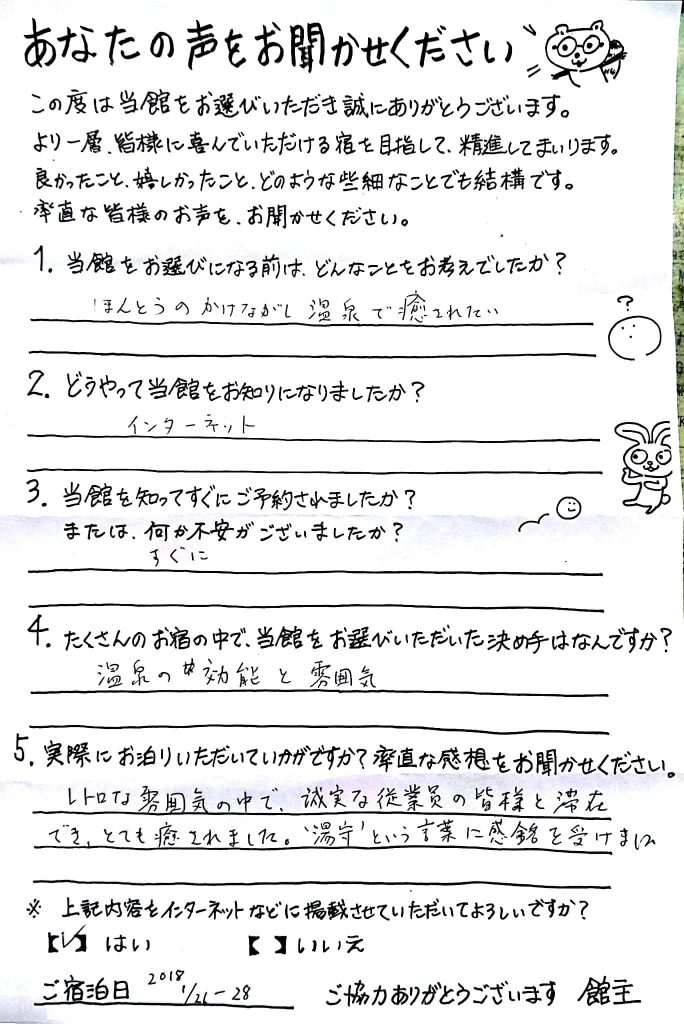 あなたの声をお聞かせください
この度は当館をお選びいただき誠にありがとうございます。
より一層、皆様に喜んでいただける宿を目指して、精進してまいります。
良かったこと、嬉しかったこと、どのような些細なことでも結構です。
率直な皆様のお声を、お聞かせください。
1. 当館をお選びになる前は、どんなことをお考えでしたか?
ほんとうのかけながし温泉で癒されたい
?
2. どうやって当館をお知りになりましたか?
インターネット
3. 当館を知ってすぐにご予約されましたか?
または、何か不安がございましたか?
すぐに
4. たくさんのお宿の中で、当館をお選びいただいた決め手はなんですか?
温泉の効能と雰囲気
5. 実際にお泊りいただいていかがですか?率直な感想をお聞かせください。
レトロな雰囲気の中で、誠実な従業員の皆様と滞在
でき、とても癒されました。'湯守'という言葉に感銘を受けまし
※ 上記内容をインターネットなどに掲載させていただいてよろしいですか?
【✓】はい 【 】いいえ
ご宿泊日 2018 1/26-28 ご協力ありがとうございます 館主